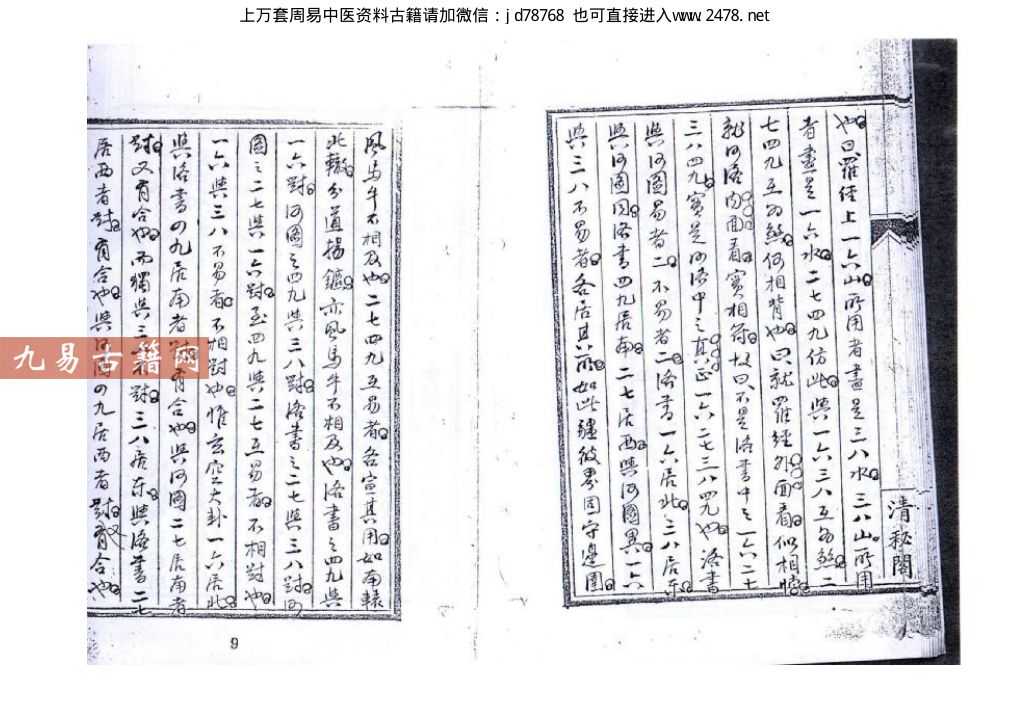 上万套周易中医资料古籍请加微信：jd78768 也可直接进入www.2478.net
也曰羅經上一六山所用者盡是三八水三八山所用
者盡是一六水二七四九仿此與一六三八互為煞二
七四九互為煞何相背也曰就羅經外面看似相悖
就河洛內面看實相符故曰不是洛書中之一六二七
三八四九實是河洛中之真正一六二七三八四九也洛書
與河圖易者二不易者二洛書一六居北三八居东
與河圖同洛書四九居南二七居西與河圖異一六
與三八不易者各居其所如此疆彼界固守邊圉
清秘閣
風馬牛不相及也二七四九互易者各宣其用如南轅
北轍分道揚鑣亦風馬牛不相及也洛書之四九與
一六對河圖之四九與三八對洛書之二七與三八對河
圖之二七與一六對至四九與二七互易者不相對也
一六與三八不易者不相對也惟玄空大卦一六居北
與洛書の九居南者對有合也與河圖二七居南者
對又有合也而獨與三八不對三八居东與洛書二七
居西者對有合也與河圖の九居西者對又有合也
九易古籍网
9